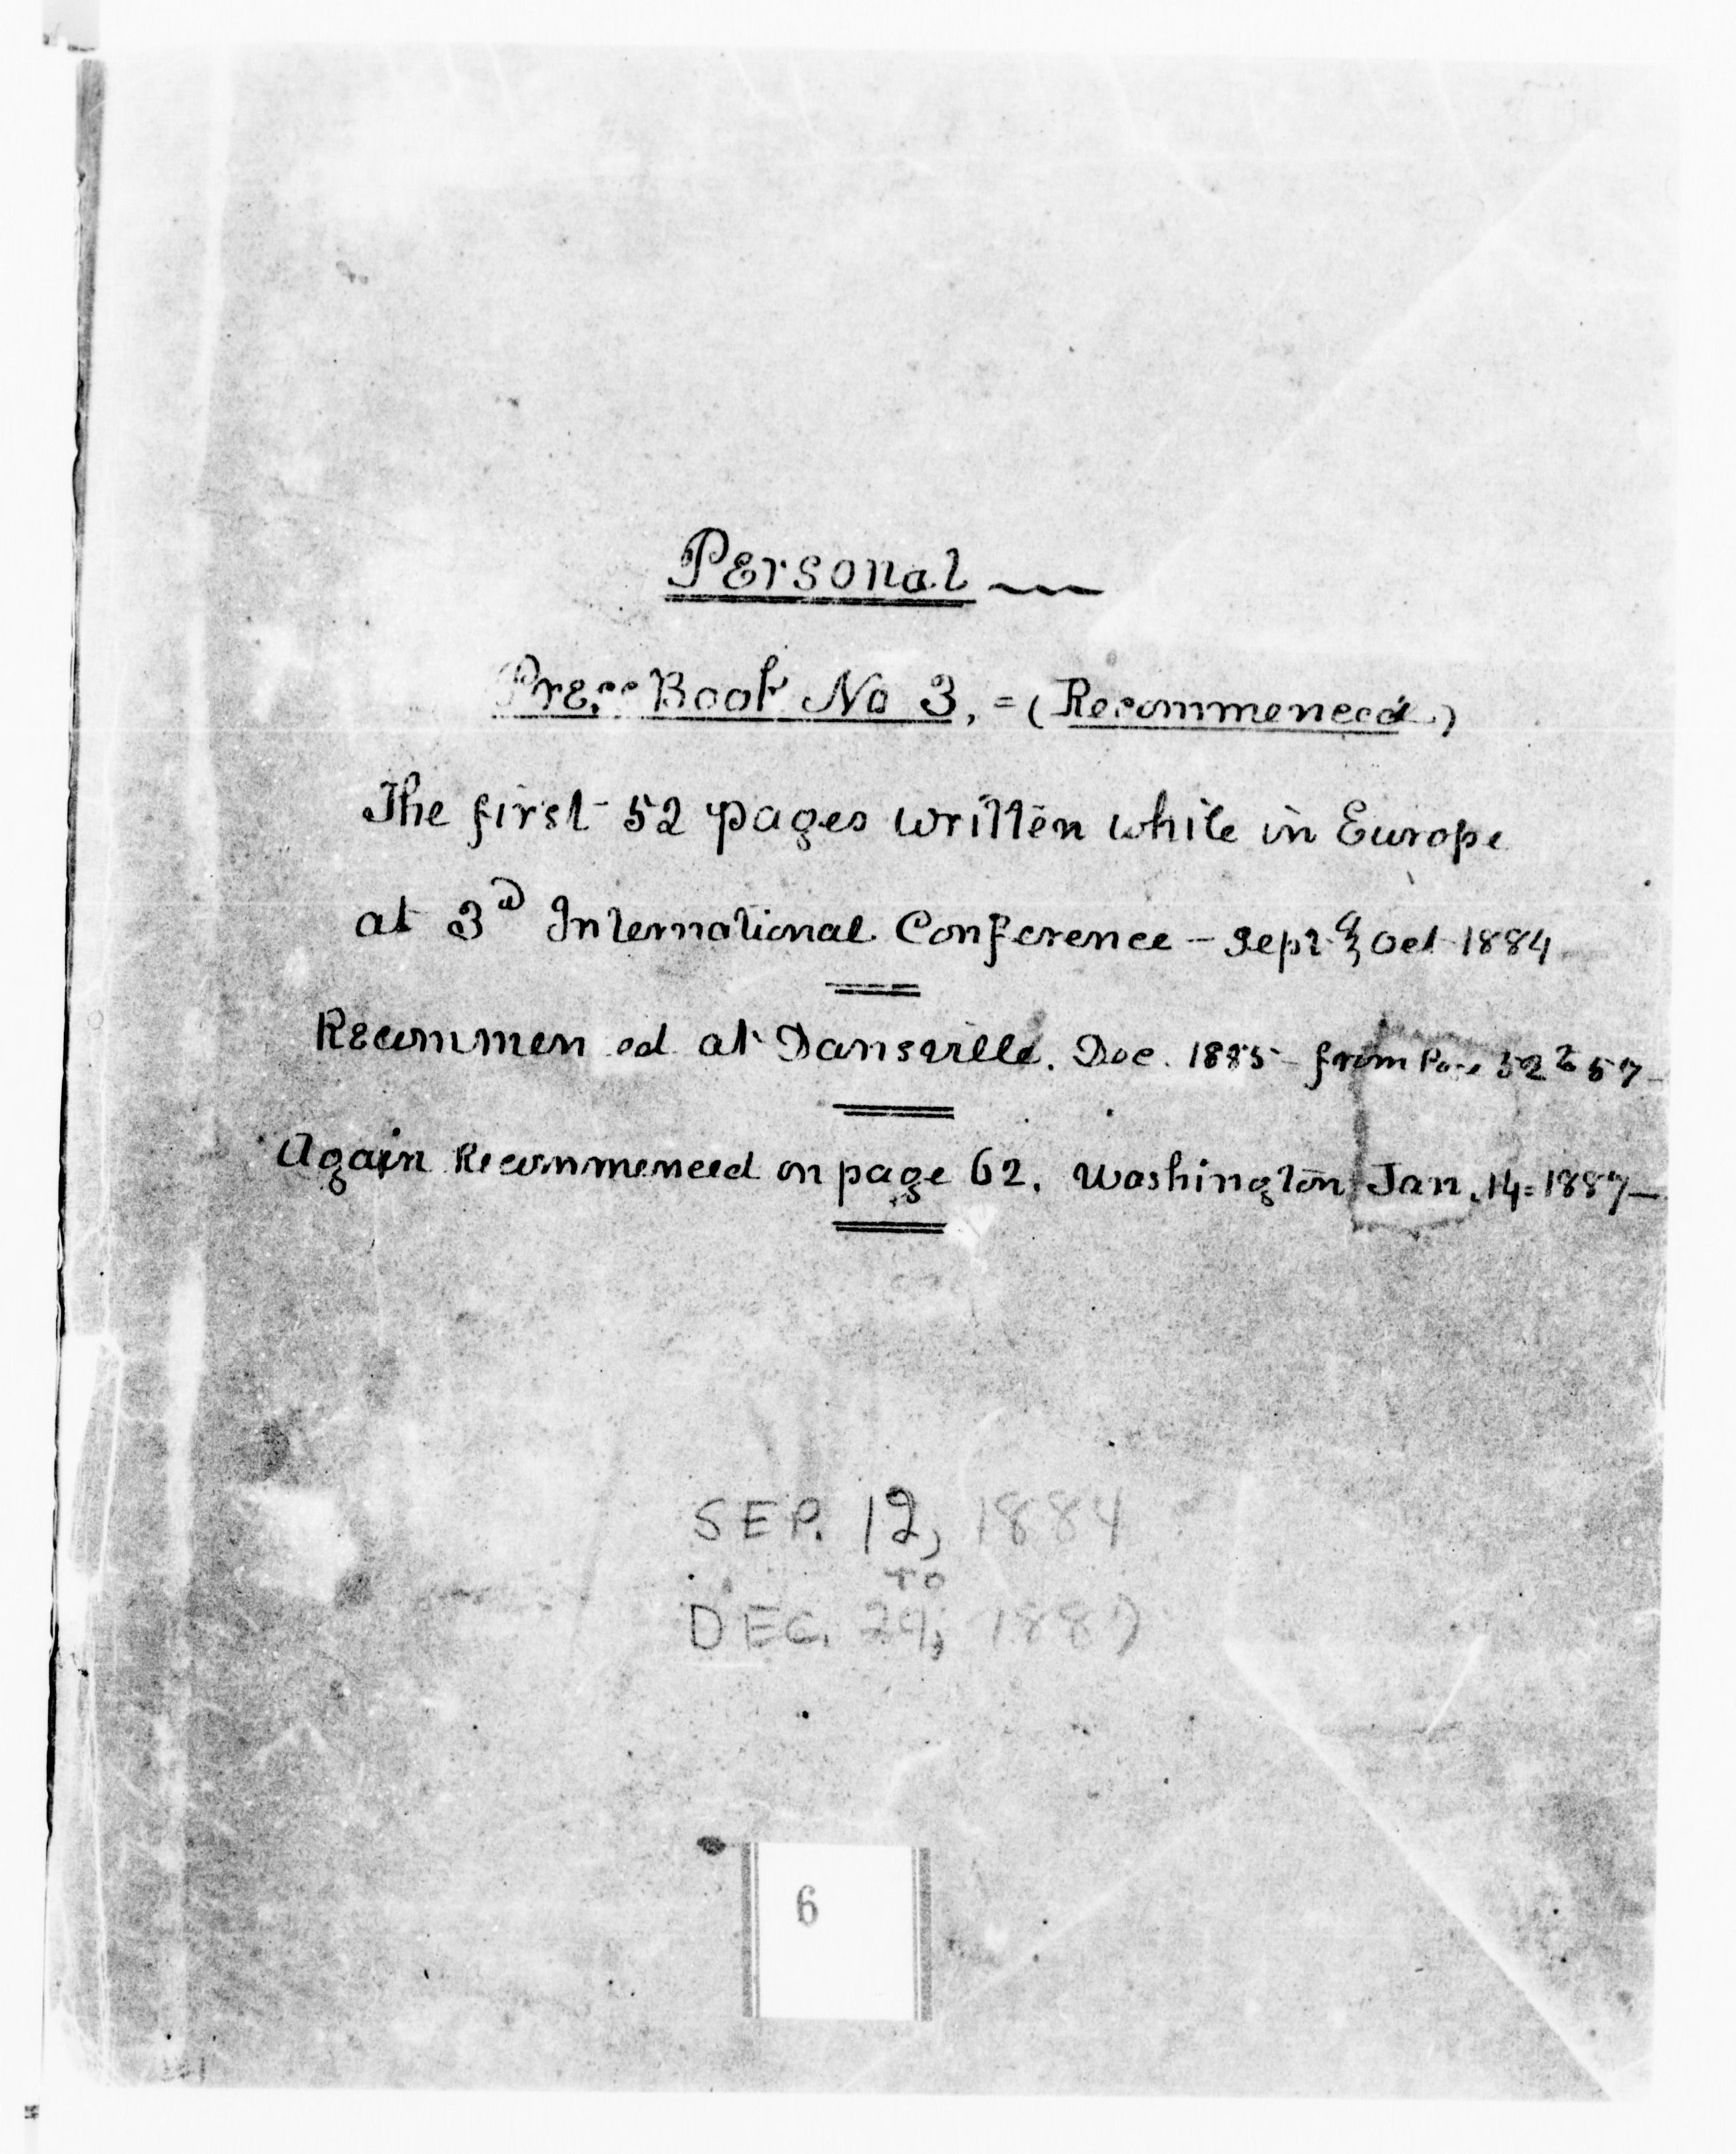 Personal
Press Book No 3, = (Recommenced)
The first 52 pages written while in Europe
at 3d International Conference - Sept & Oct 1884
Recommenced at Dansville. Dec. 1885 - from Page 52 to 57 -
Again Recommenced on page 62. Washington Jan. 14 = 1887 -
SEP. 12, 1884
TO
DEC. 29, 1887
6